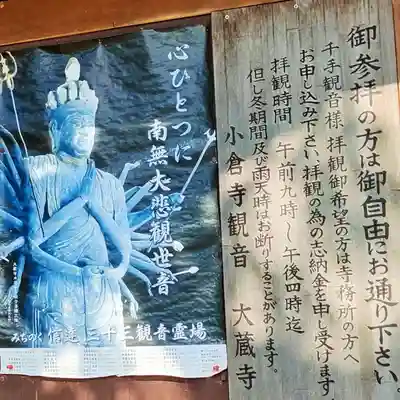 御参拝の方は御自由にお通り下さい。
千手観音様 拝観御希望の方は寺務所の方へ
お申し込み下さい、拝観の為の志納金を申し受けます
拝観時間 午前九時〜午後四時迄
但し冬期間及び雨天時はお断りすることがあります。
小倉寺観音 大蔵寺
心ひとつに
南無大悲観世音
みちのく 信達三十三観音霊場